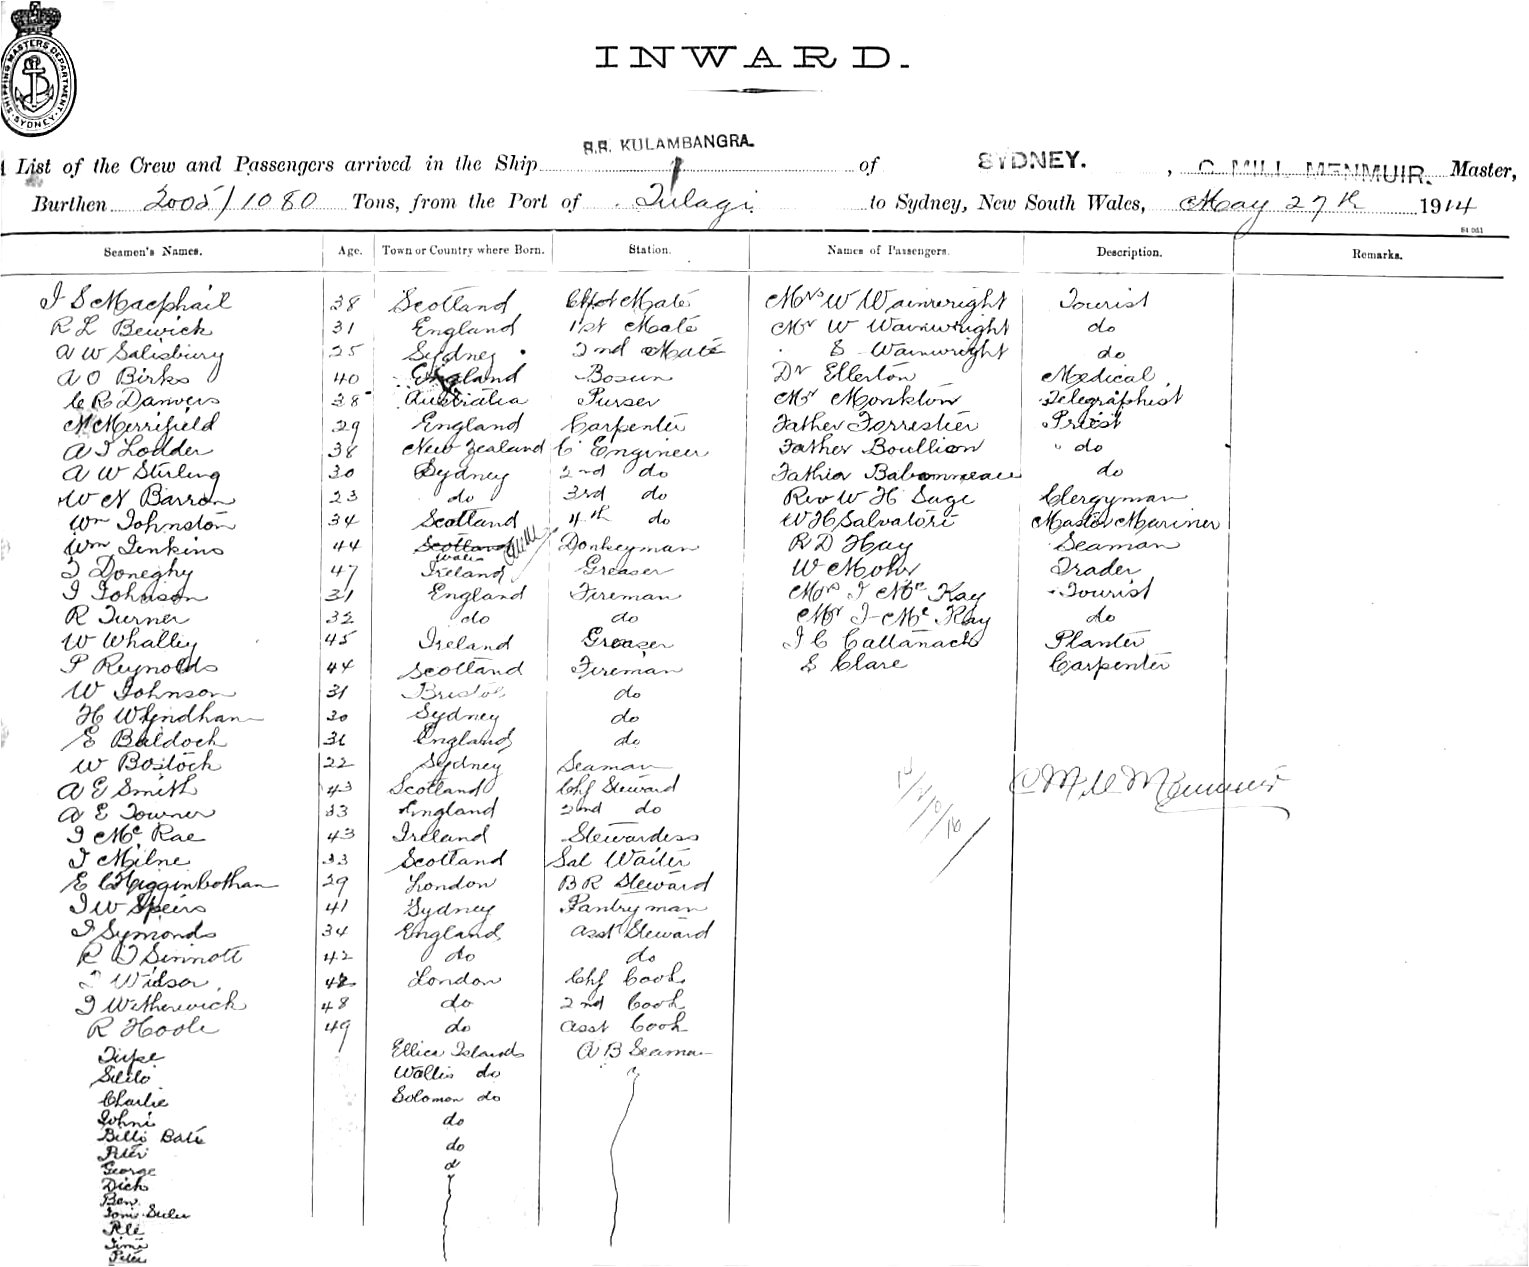 SHIPPING MASTERS DEPARTMENT SYDNEY
INWARD.
S.S. KULAMBANGRA.
List of the Crew and Passengers arrived in the Ship of SYDNEY. , C MILL MENMUIR. Master,
Burthen 2005/1080 Tons, from the Port of Tulagi to Sydney, New South Wales, May 27th 1914
Seamen's Names. Age. Town or Country where Born. Station. Names of Passengers. Description. Remarks.
J S Macphail 38 Scotland Chf Mate Mrs W Wainwright Tourist
R L Bewick 31 England 1st Mate Mr W Wainwright do
A W Salisbury 25 Sydney 2nd Mate S Wainwright do
A O Birks 40 England Bosun Dr Ellerton Medical
C R Danvers 38 Australia Purser Mr Monkton Telegraphist
M Merrifield 29 England Carpenter Father Forrestier Priest
A J Lodder 38 New Zealand C Engineer Father Boullion do
A W Stirling 30 Sydney 2nd do Father Babonneau do
W N Barron 23 do 3rd do Rev W H Sage Clergyman
Wm Johnston 34 Scotland 4th do W H Salvatori Master Mariner
Wm Jenkins 44 Scotland Wales Donkeyman R D Hay Seaman
J Doneghy 47 Ireland Greaser W Mohr Trader
J Johnson 31 England Fireman Mrs J McKay Tourist
R Turner 32 do do Mr J McKay do
W Whalley 45 Ireland Greaser J C Cattanach Planter
P Reynolds 44 Scotland Fireman E Clare Carpenter
W Johnson 31 Bristol do
H Wyndham 30 Sydney do
E Baldock 31 England do
W Bostock 22 Sydney Seaman
A E Smith 43 Scotland Chf Steward C Mill Menmuir
A E Towner 33 England 2nd do
J McRae 43 Ireland Stewardess
J Milne 33 Scotland Sal Waiter
E C Higginbotham 29 London B R Steward
J W Speirs 41 Sydney Pantryman
J Symonds 34 England Asst Steward
R J Sinnott 42 do do
42 London Chf Cook
J Wetherwick 48 do 2nd Cook
R Hoole 49 do Asst Cook
Tupe Ellice Islands A B Seaman
Sulilo Wallis do
Charlie Solomon do
Johni do
Billi Bate do
Peter
George
Dick
Ben
Pele
Jimi
Peter